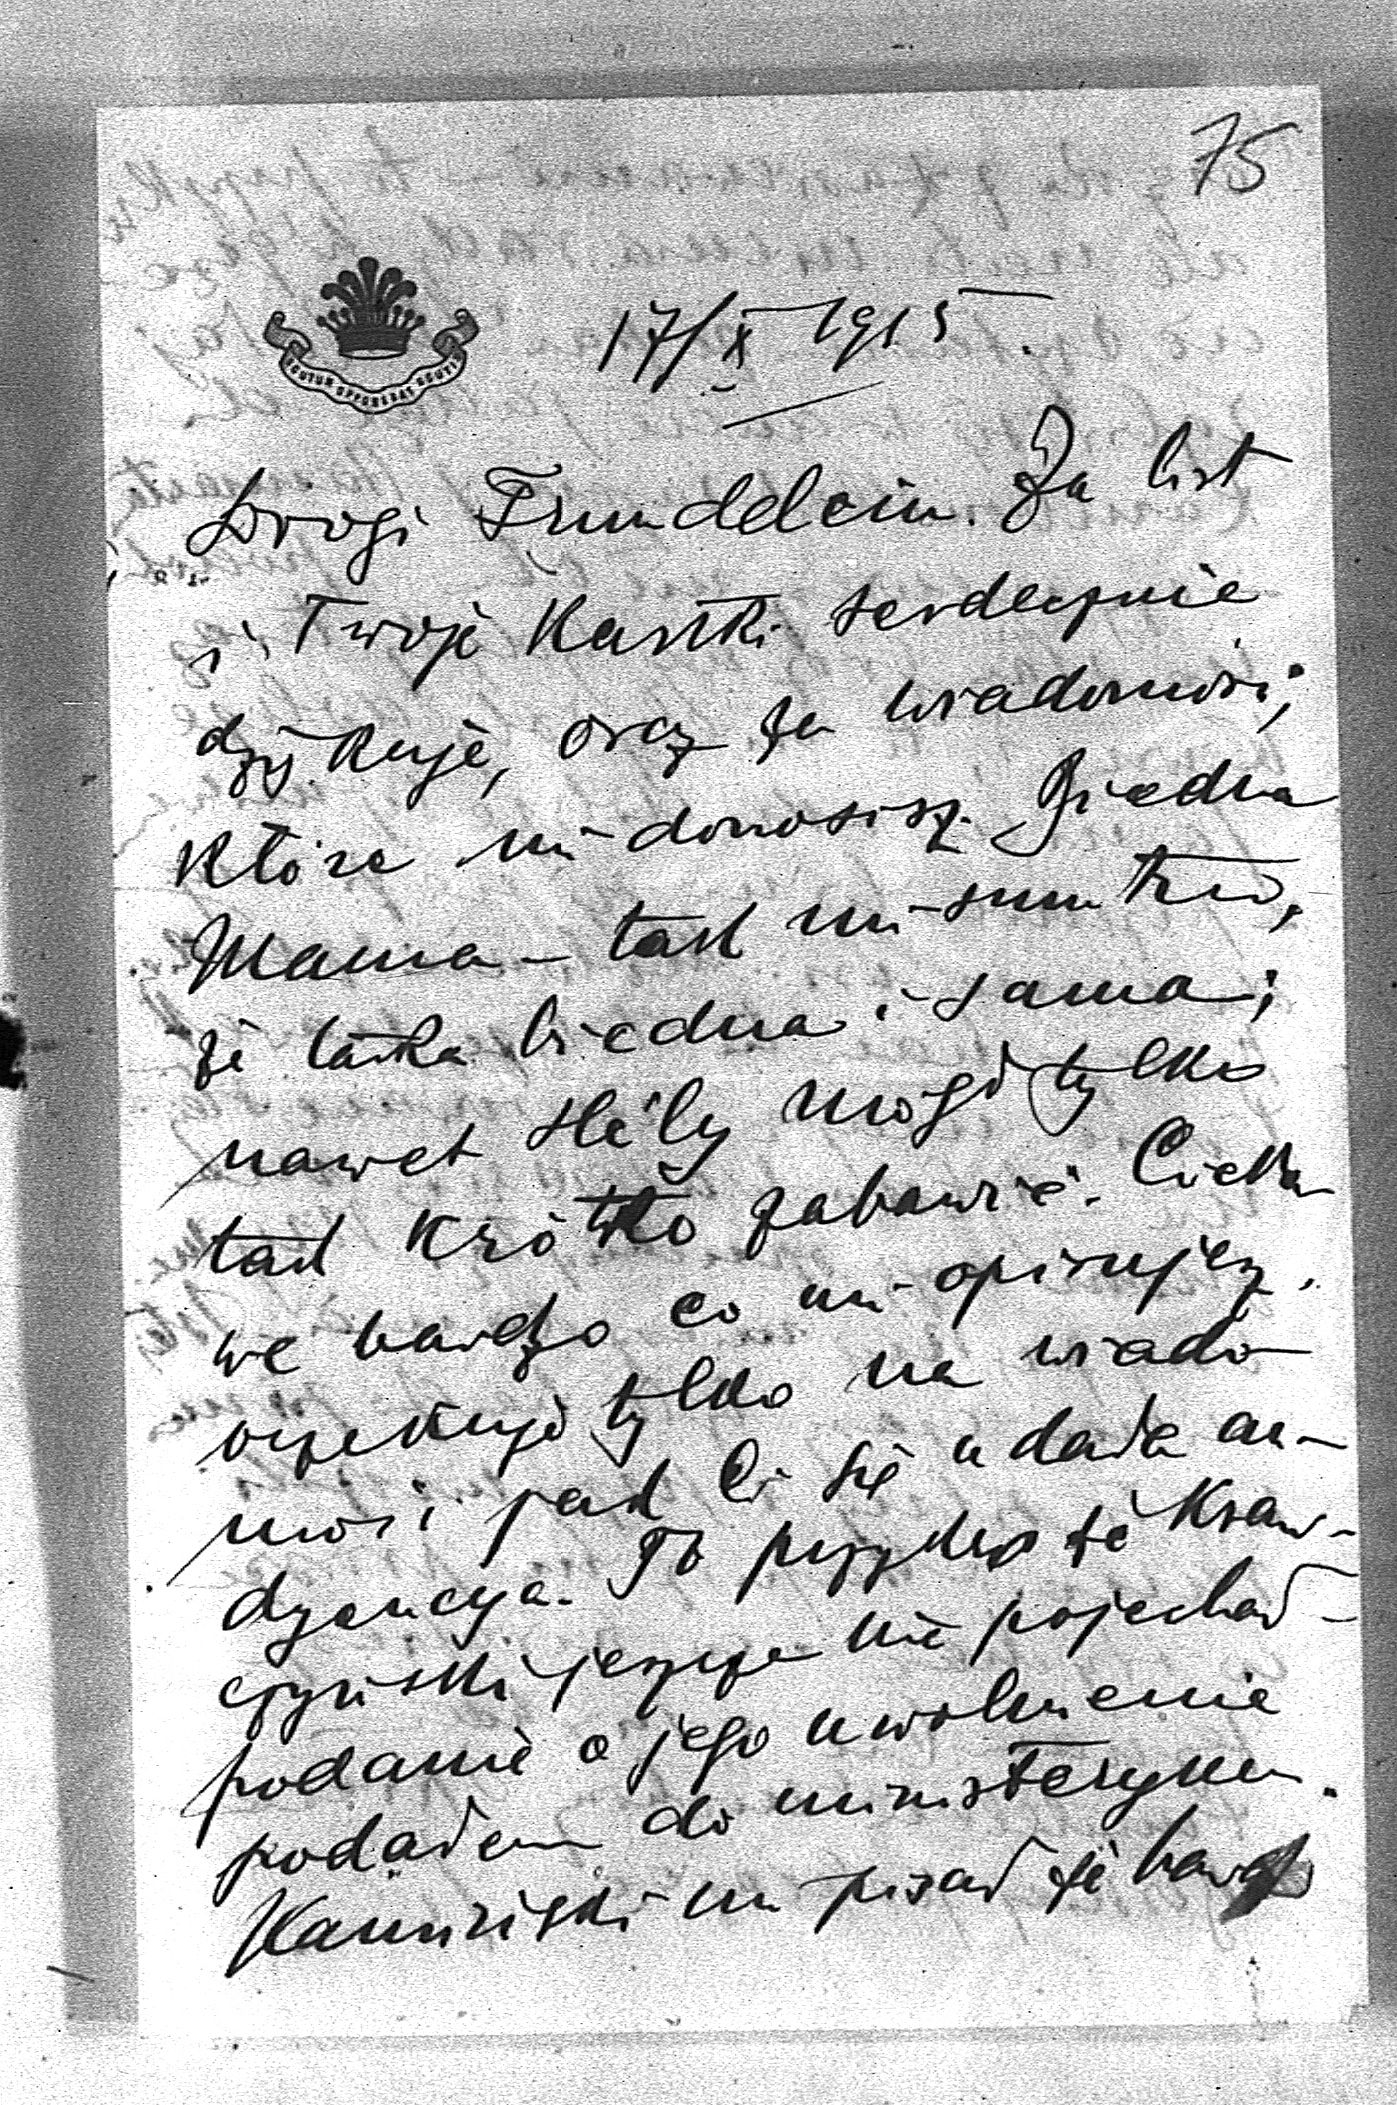 75
SCUTUM OPPONEBAT SCUTIS
17/X 1915.
Drogi Frundelciu. Za list
i Twoje Kartki serdecznie
dziękuję, oraz za wiadomości,
które mi donosisz. Biedna
Mama – tak mi smutno,
że taka biedna i sama;
nawet Hély mógł tylko
tak krótko zabawić. Cieka
we bardzo co mi opisujesz,
oczekuję tylko na wiado-
mość jak Ci się udała au-
dyencya. To przykre że Kraw-
czyński jeszcze nie pojechał –
podanie o jego uwolnienie
podałem do ministeryum.
Kamiński mi pisał że bardzo